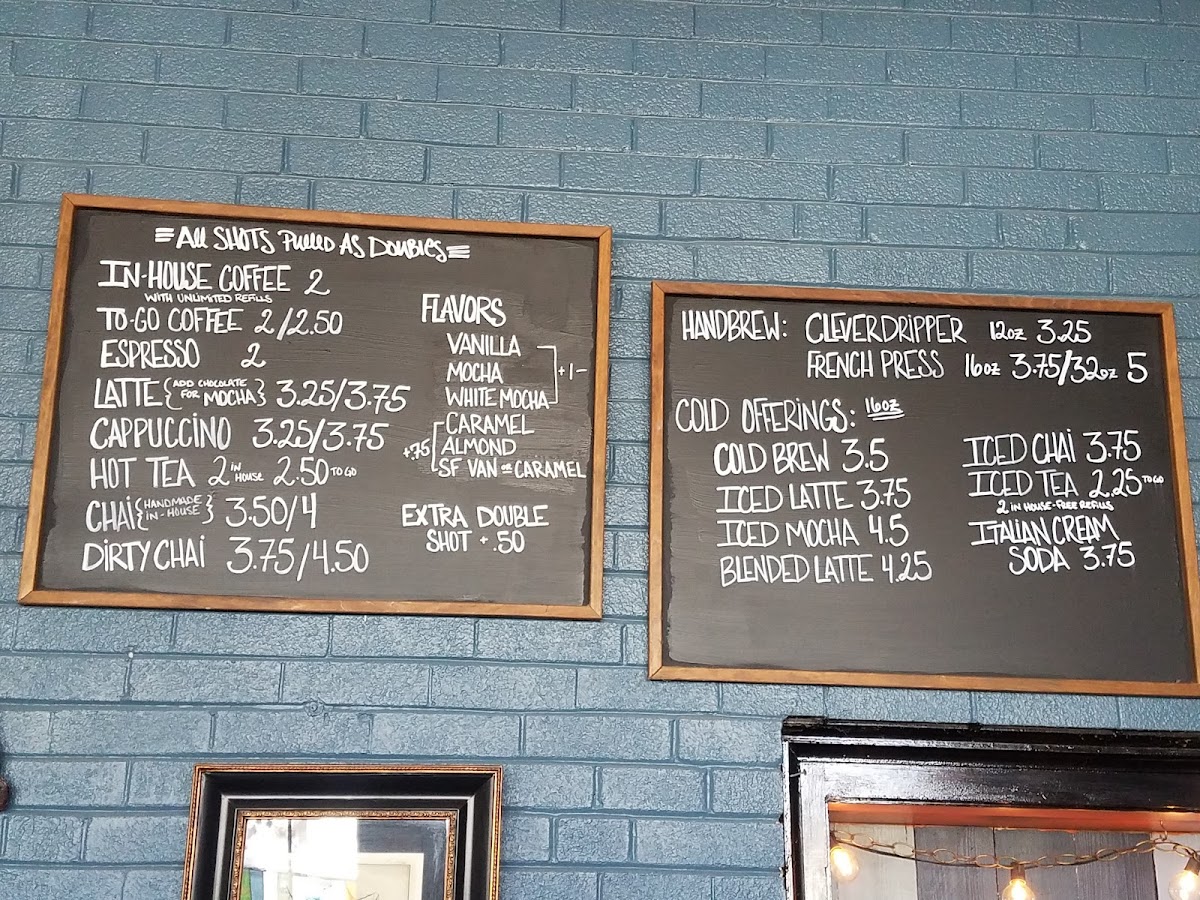 All SHOTS Pulled AS Doubles
IN-HOUSE COFFEE 2
WITH UNLIMITED REFILLS
TO-GO COFFEE 2/2.50
ESPRESSO 2
LATTE {ADD CHOCOLATE FOR MOCHA} 3.25/3.75
CAPPUCCINO 3.25/3.75
HOT TEA 2 IN HOUSE 2.50 TO GO
CHAI {HANDMADE IN-HOUSE} 3.50/4
DIRTY CHAI 3.75/4.50
FLAVORS
VANILLA
MOCHA
WHITE MOCHA
+1-
CARAMEL
ALMOND
SF VAN OR CARAMEL
+.75
EXTRA DOUBLE
SHOT + .50
HANDBREW: CLEVERDRIPPER 12oz 3.25
FRENCH PRESS 16oz 3.75/32oz 5
COLD OFFERINGS: 16oz
COLD BREW 3.5
ICED LATTE 3.75
ICED MOCHA 4.5
BLENDED LATTE 4.25
ICED CHAI 3.75
ICED TEA 2.25 TO GO
2 IN HOUSE-FREE REFILLS
ITALIAN CREAM
SODA 3.75